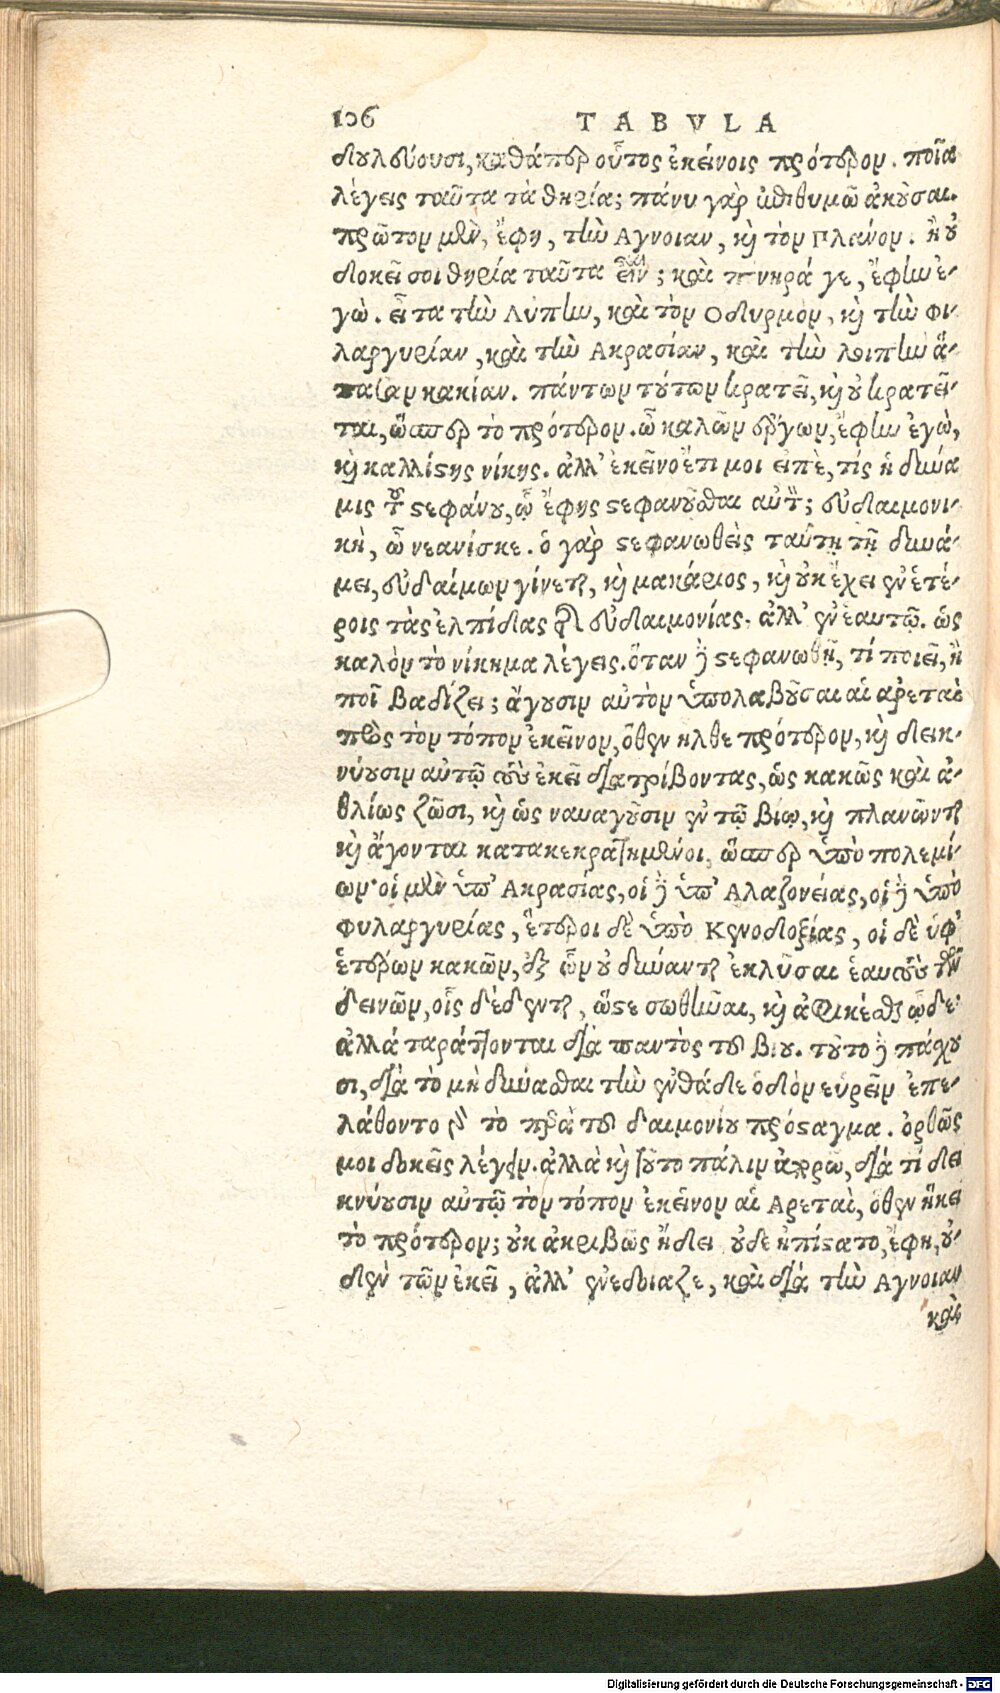 106 TABVLA
δουλεύουσι, καθάπερ οὗτος ἐκείνοις πρότερον. ποῖα
λέγεις ταῦτα τὰ θηρία; πάνυ γὰρ ἐπιθυμῶ ἀκοῦσαι.
πρῶτον μὲν, ἔφη, τὴν Αγνοιαν, καὶ τὸν Πλάνον. ἢ οὐ
δοκεῖ σοι θηρία ταῦτα εἶναι; καὶ πονηρά γε, ἔφην ἐ-
γὼ. εἶτα τὴν Λύπην, καὶ τὸν Οδυρμὸν, καὶ τὴν Φι-
λαργυρίαν, καὶ τὴν Ακρασίαν, καὶ τὴν λοιπὴν ἅ-
πασαν κακίαν. πάντων τούτων κρατεῖ, καὶ οὐ κρατεῖ-
ται, ὥσπερ τὸ πρότερον. ὦ καλῶν ἔργων, ἔφην ἐγὼ,
καὶ καλλίστης νίκης. ἀλλ' ἐκεῖνο ἔτι μοι εἰπὲ, τίς ἡ δύνα
μις τοῦ στεφάνου, ᾧ ἔφης στεφανοῦσθαι αὐτόν; εὐδαιμονι-
κὴ, ὦ νεανίσκε. ὁ γὰρ στεφανωθεὶς ταύτῃ τῇ δυνά-
μει, εὐδαίμων γίνεται, καὶ μακάριος, καὶ οὐκ ἔχει ἐν ἑτέ-
ροις τὰς ἐλπίδας τῆς εὐδαιμονίας, ἀλλ' ἐν ἑαυτῷ. ὡς
καλὸν τὸ νίκημα λέγεις. ὅταν δὲ στεφανωθῇ, τί ποιεῖ, ἢ
ποῖ βαδίζει; ἄγουσιν αὐτὸν ὑπολαβοῦσαι αἱ αρεταὶ
πρὸς τὸν τόπον ἐκεῖνον, ὅθεν ηλθε πρότερον, καὶ δεικ-
νύουσιν αὐτῷ τοὺς ἐκεῖ διατρίβοντας, ὡς κακῶς καὶ ἀ-
θλίως ζῶσι, καὶ ὡς ναυαγοῦσιν ἐν τῷ βίῳ, καὶ πλανῶνται
καὶ ἄγονται κατακεκρατημένοι, ὥσπερ ὑπὸ πολεμί-
ων· οἱ μὲν ὑπ' Ακρασίας, οἱ δὲ ὑπ' Αλαζονείας, οἱ δὲ ὑπὸ
Φυλαργυρίας, ἕτεροι δὲ ὑπὸ Κενοδοξίας, οἱ δὲ ὑφ'
ἑτέρων κακῶν, ἐξ ὧν οὐ δύνανται ἐκλῦσαι ἑαυτοὺς τῶν
δεινῶν, οἷς δέδενται, ὥστε σωθῆναι, καὶ ἀφικέσθαι ὧδε·
ἀλλά ταράττονται διὰ παντὸς τοῦ βίου. τοῦτο δὲ πάχου
σι, διὰ τὸ μὴ δύνασθαι τὴν ἐνθάδε ὁδὸν εὑρεῖν ἐπε-
λάθοντο γὰρ τὸ παρὰ τοῦ δαιμονίου πρόσταγμα. ὀρθῶς
μοι δοκεῖς λέγειν. ἀλλὰ καὶ τοῦτο πάλιν ἀπορῶ, διὰ τί δει
κνύουσιν αὐτῷ τὸν τόπον ἐκεῖνον αἱ Αρεταὶ, ὅθεν ἥκει
τὸ πρότερον; οὐκ ἀκριβῶς ᾔδει οὐδε ἠπίστατο, ἔφη, οὐ-
δὲν τῶν ἐκεῖ, ἀλλ' ἐνεδοίαζε, καὶ διὰ τὴν Αγνοιαν
καὶ
Digitalisierung gefördert durch die Deutsche Forschungsgemeinschaft - DFG